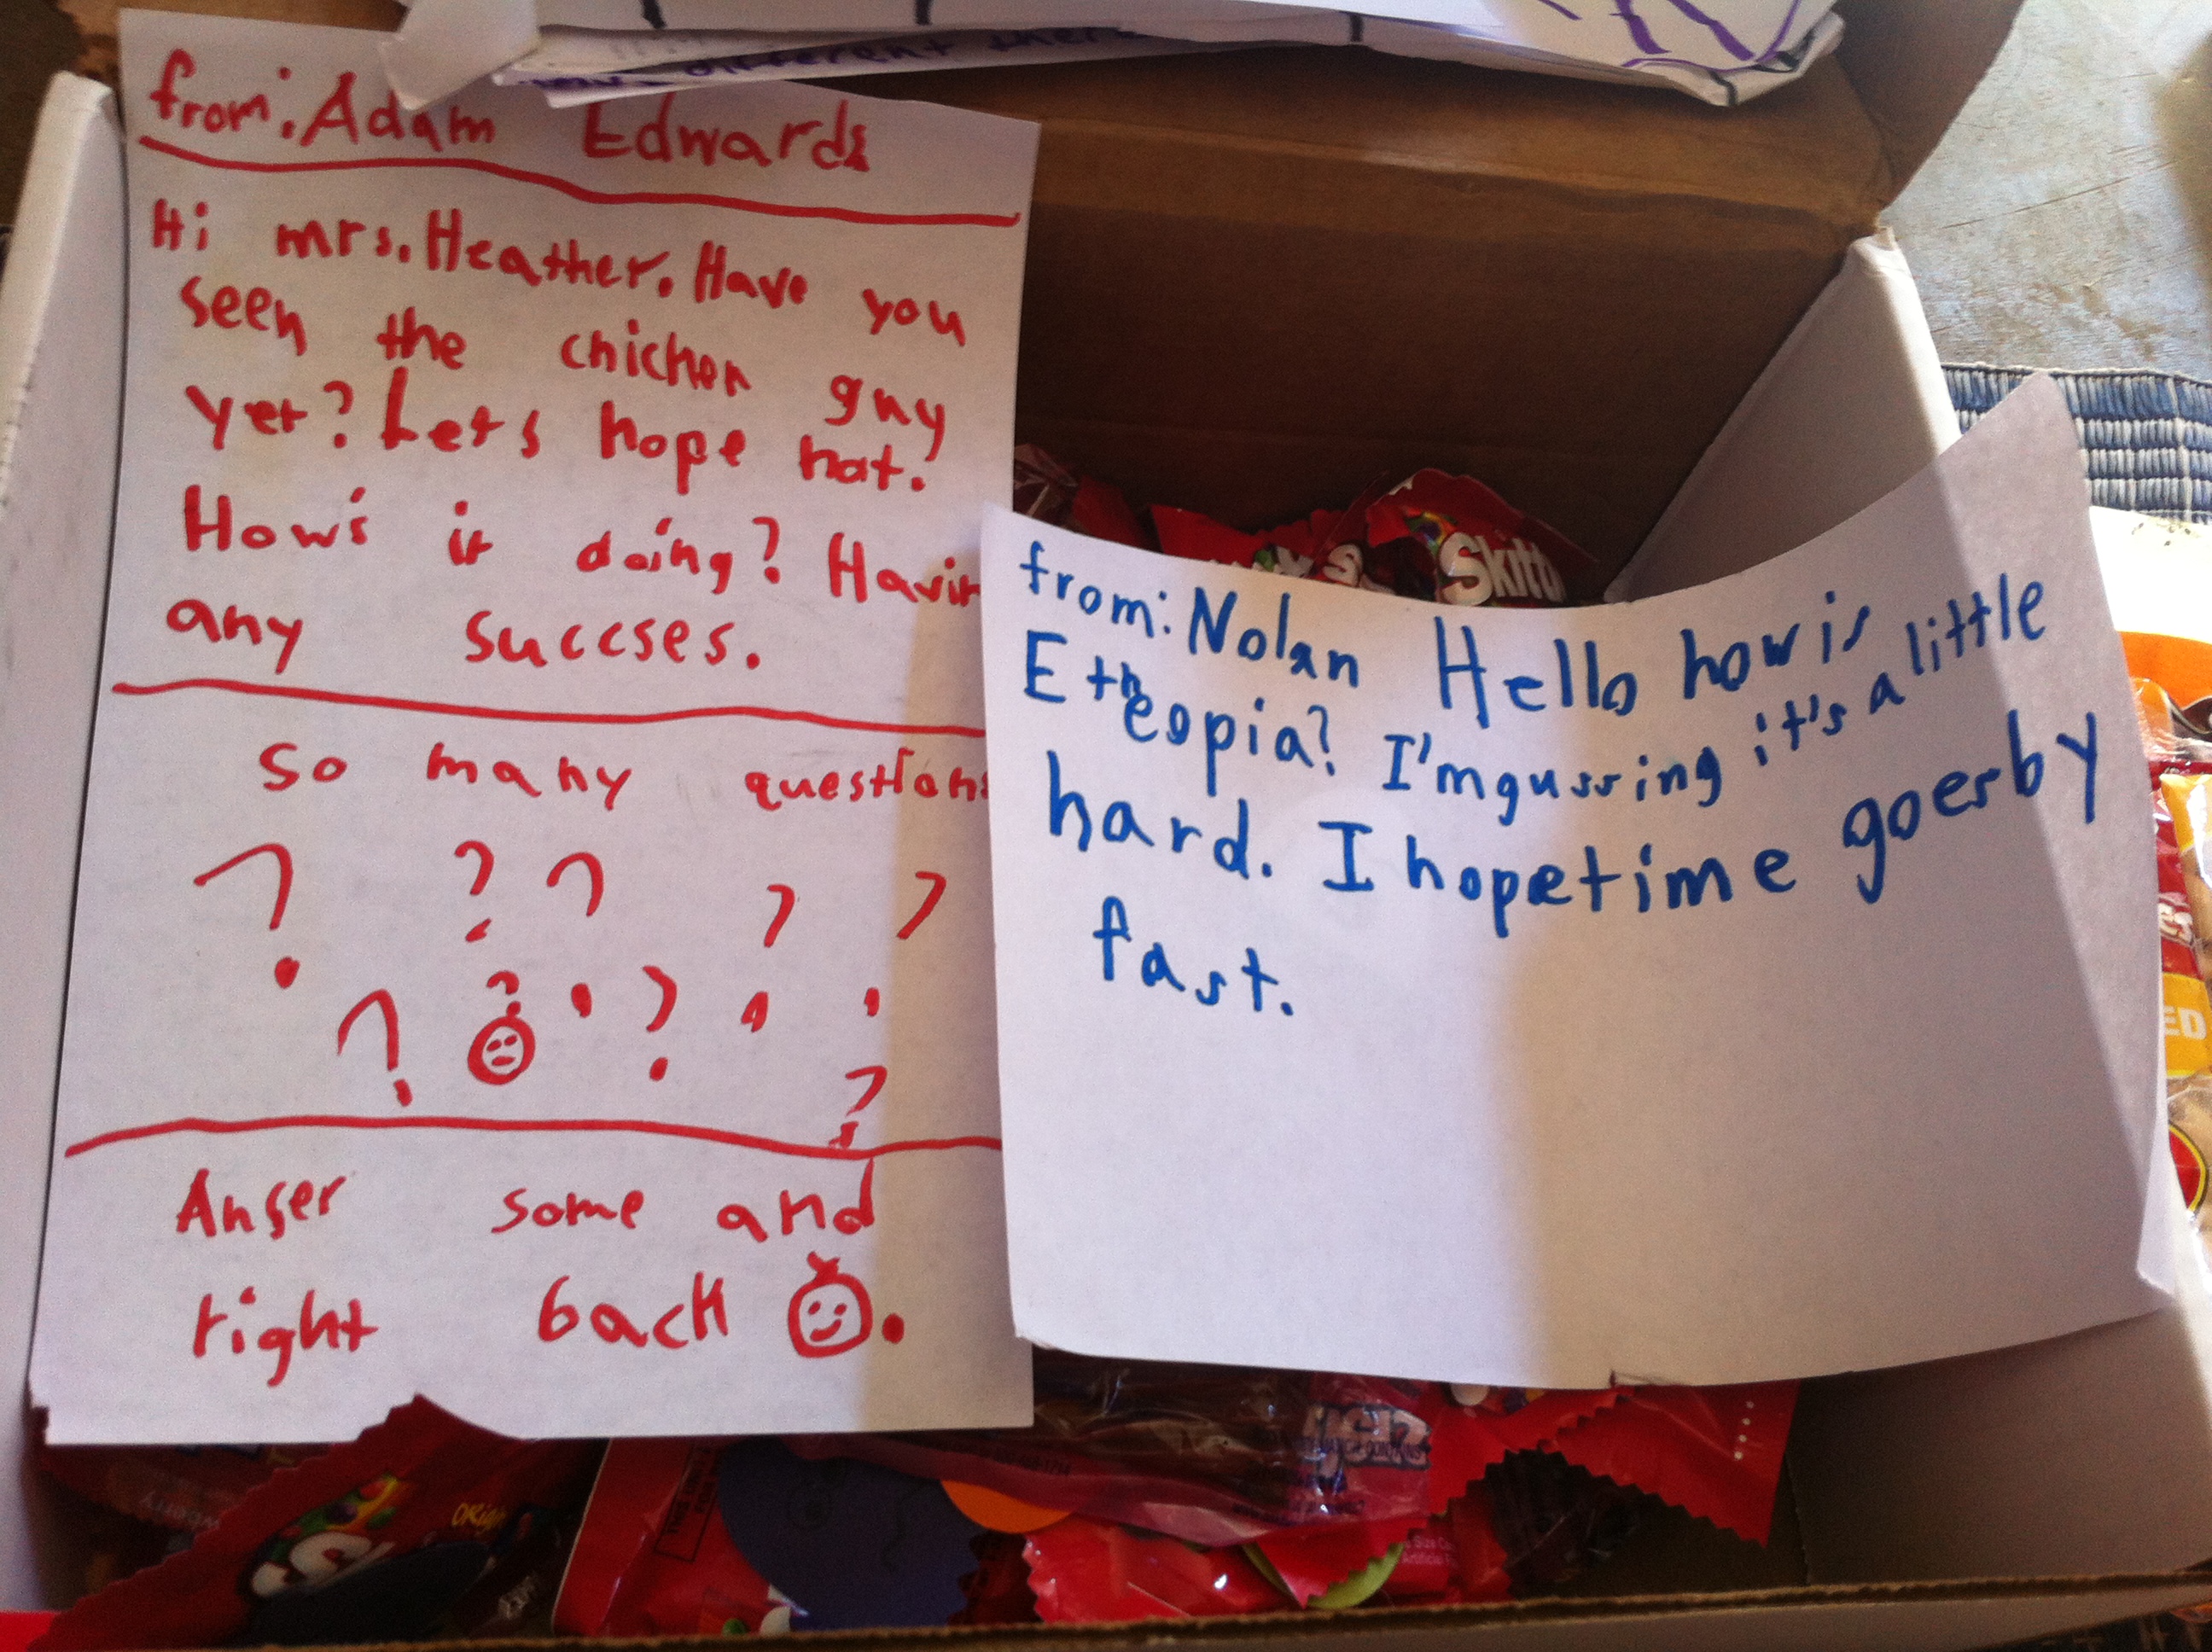 different ther
from: Adam Edwards
Hi mrs. Heather. Have you
seen the chicken guy
yet? Let's hope not.
How's it doing? Havin
any succses.
So many questions
? ? ? ? ?
? ? ? ?
Anser some and
right back
from: Nolan Hello how is
Etheopia? I'm gussing it's a little
hard. I hope time goes by
fast.
Skitt
ED
Origi